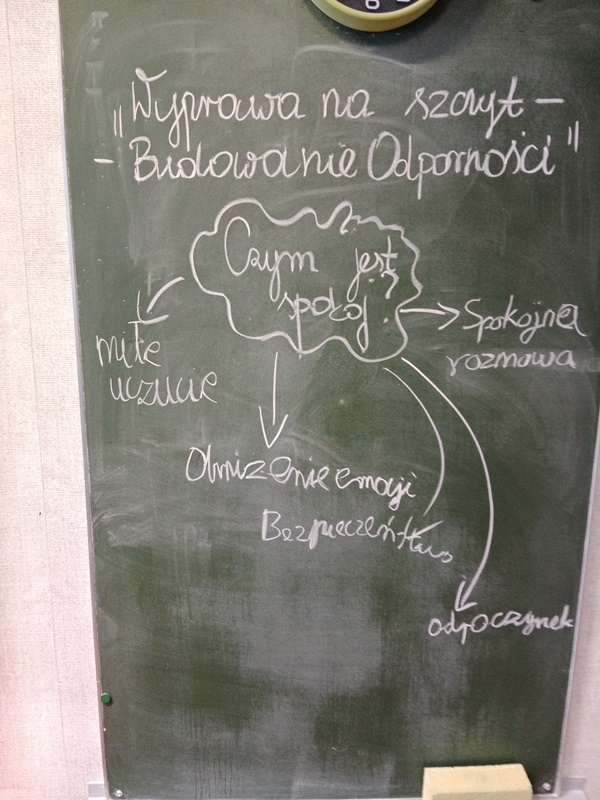 "Wyprawa na szczyt -
- Budowanie Odporności"
Czym jest
spokój?
miłe
uczucie
Spokojna
rozmowa
Obniżenie emocji
Bezpieczeństwo
odpoczynek